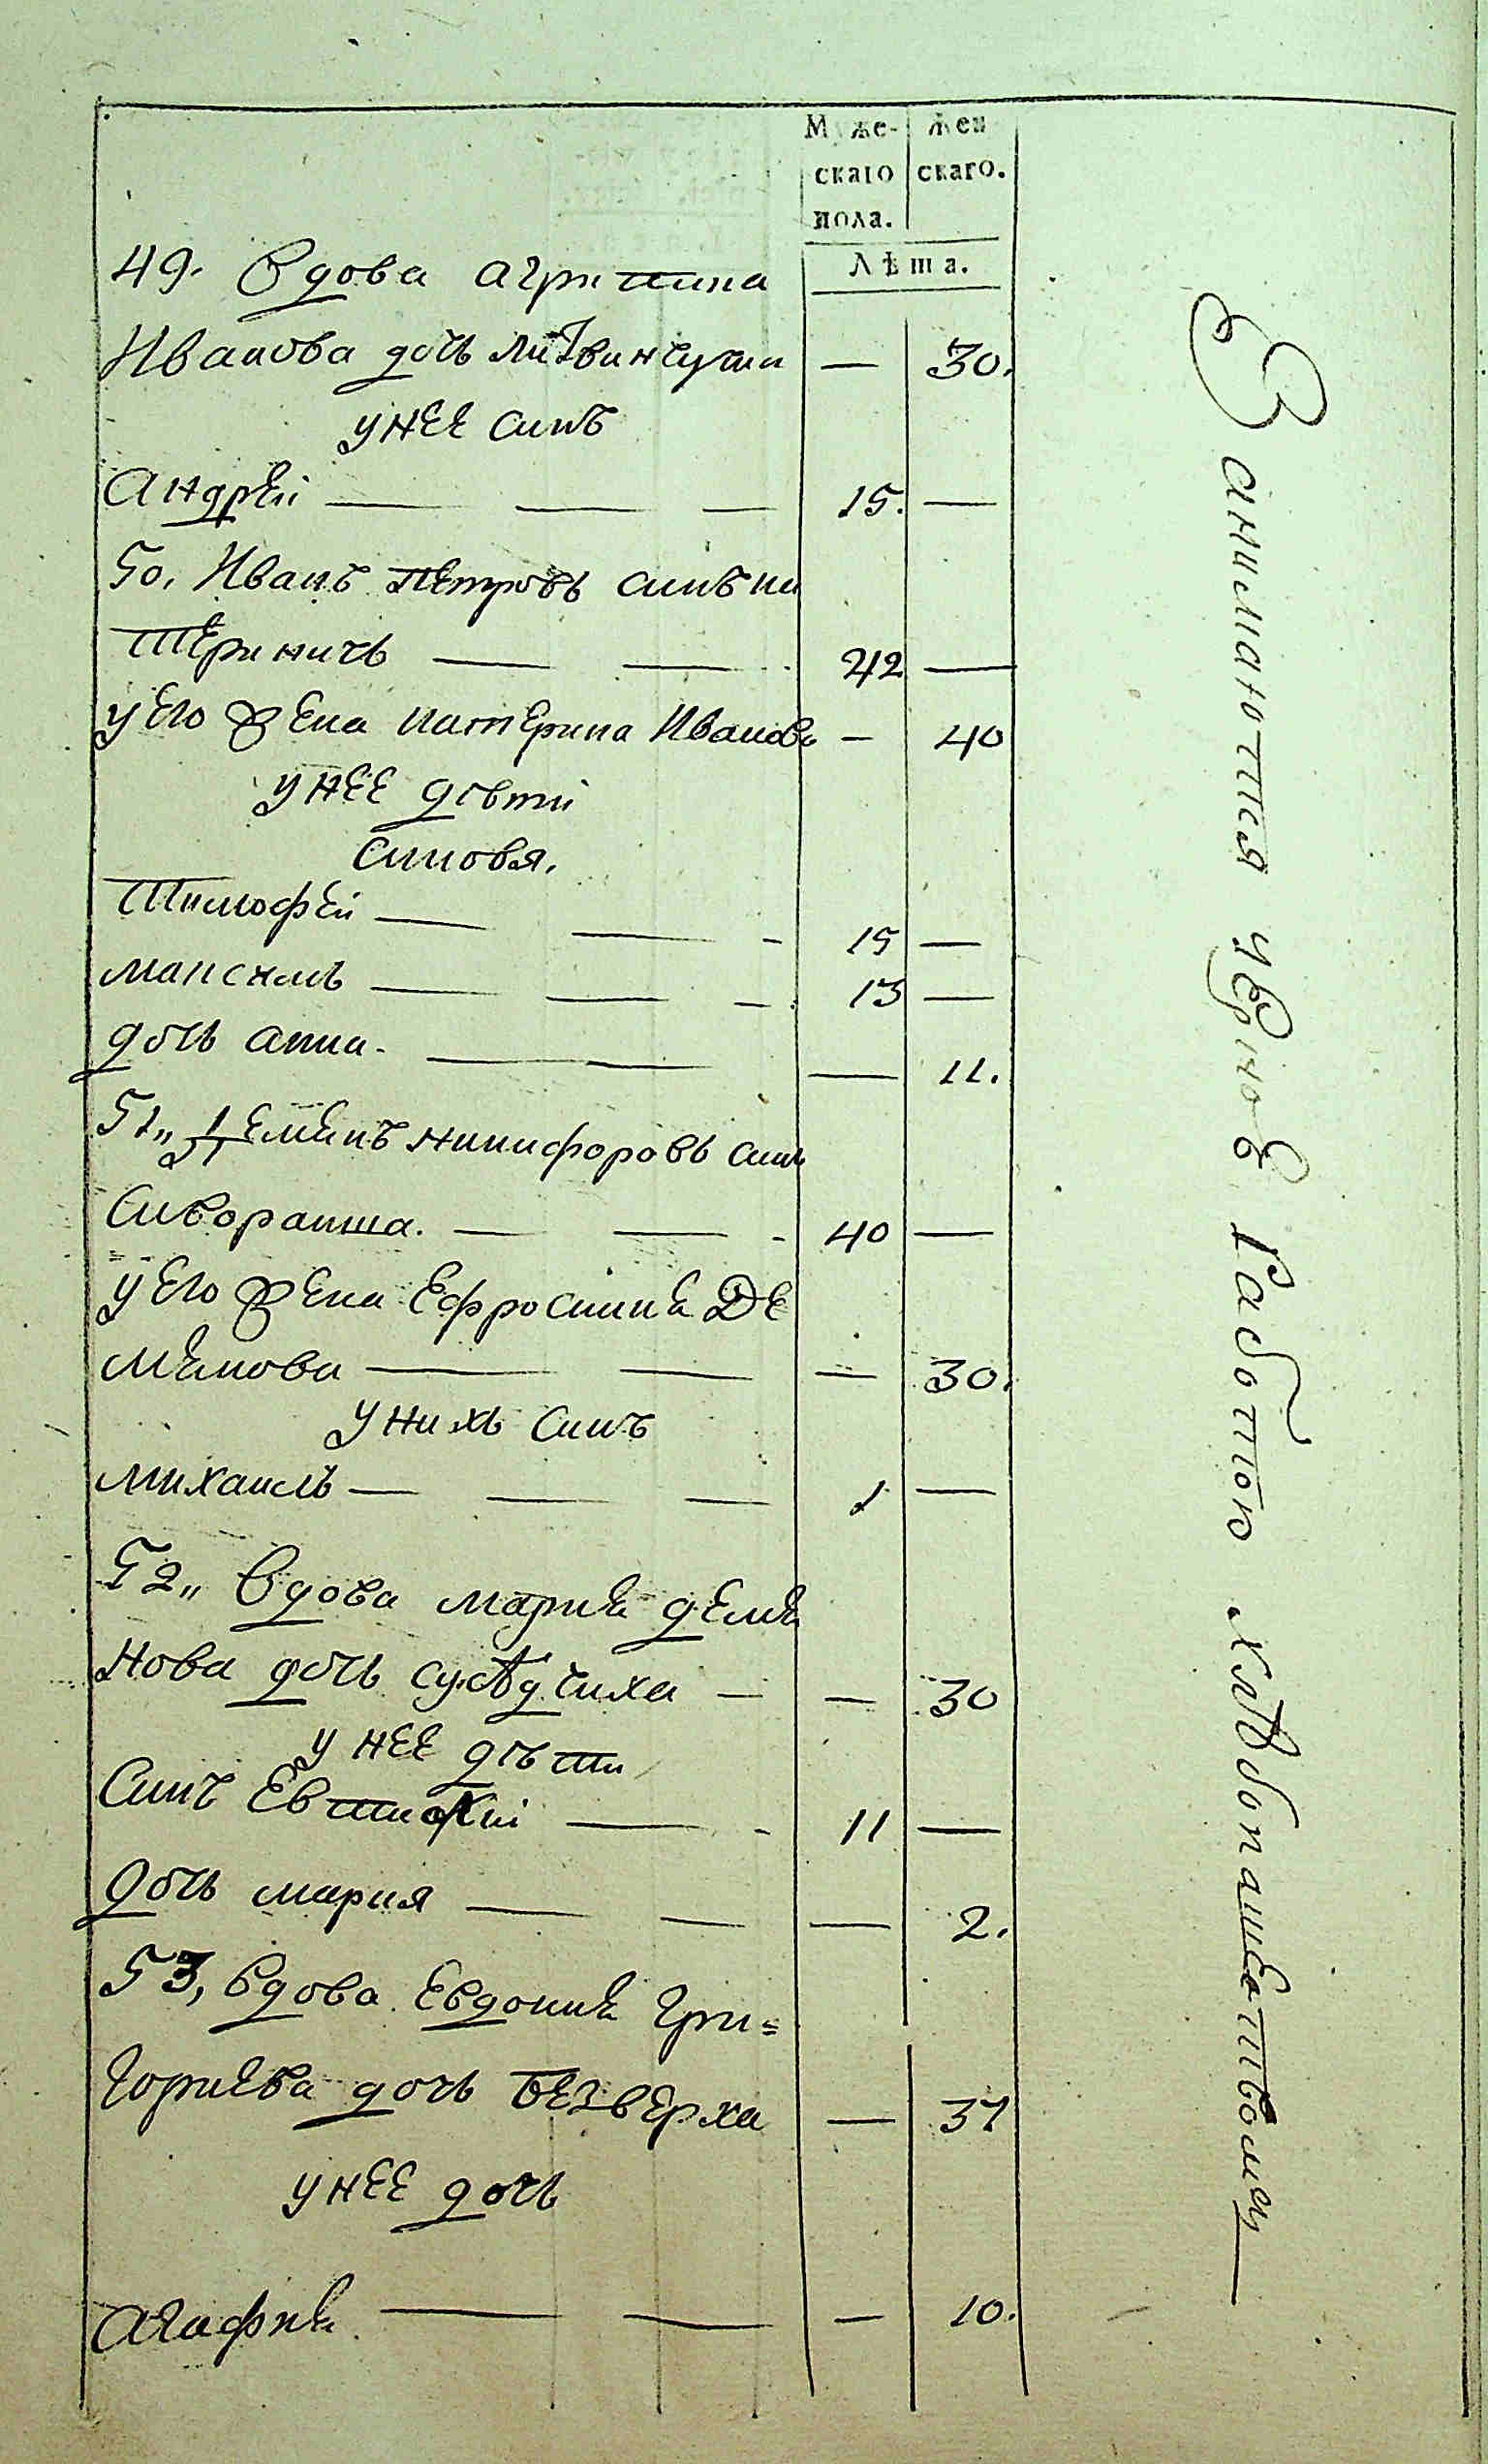 Муже- Жен
скаго скаго.
пола.
Лѣта.
49. Вдова агрипина
Иванова дочь литвинчуки — 30.
У НЕЕ синъ
андрей — — — 15. —
50, Иванъ петровъ синъ ки
тѣриничъ — — 42 —
У Его жена катерина Иванова — 40
У НЕЕ дѣтй
синовя.
тимофей — — — 15 —
максимъ — — — 13 —
дочь анна. — — — 11.
51„ демянъ никифоровъ синъ
Сиворакша. — — - 40 —
У Его жена Ефросиния Де
мянова — — — 30.
У нихъ синъ
михаилъ — — — 1 —
52„ Вдова мария демя
нова дочь сусѣдчиха — — 30
У НЕЕ дѣти
синъ Евтихій — - 11 —
дочь мария — — — 2.
53, Вдова Евдокия гри=
гориева дочь безверха — 37
У НЕЕ дочь
агафия — — — 10.
Занимаются черною работою хлѣбопашествомъ —